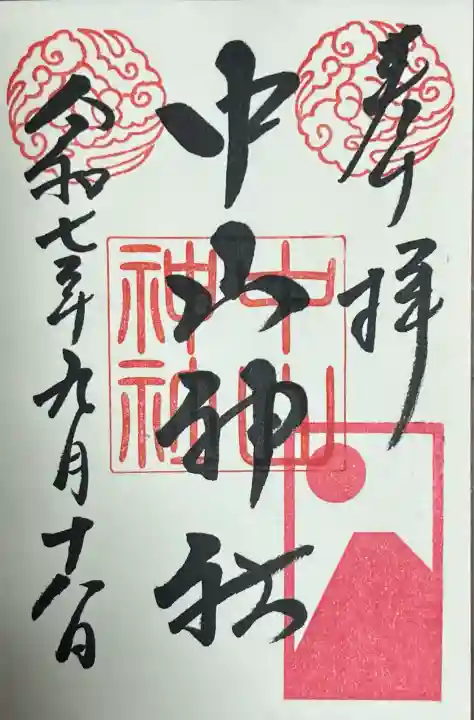 奉拝
中山神社
中山神社
令和七年九月十八日